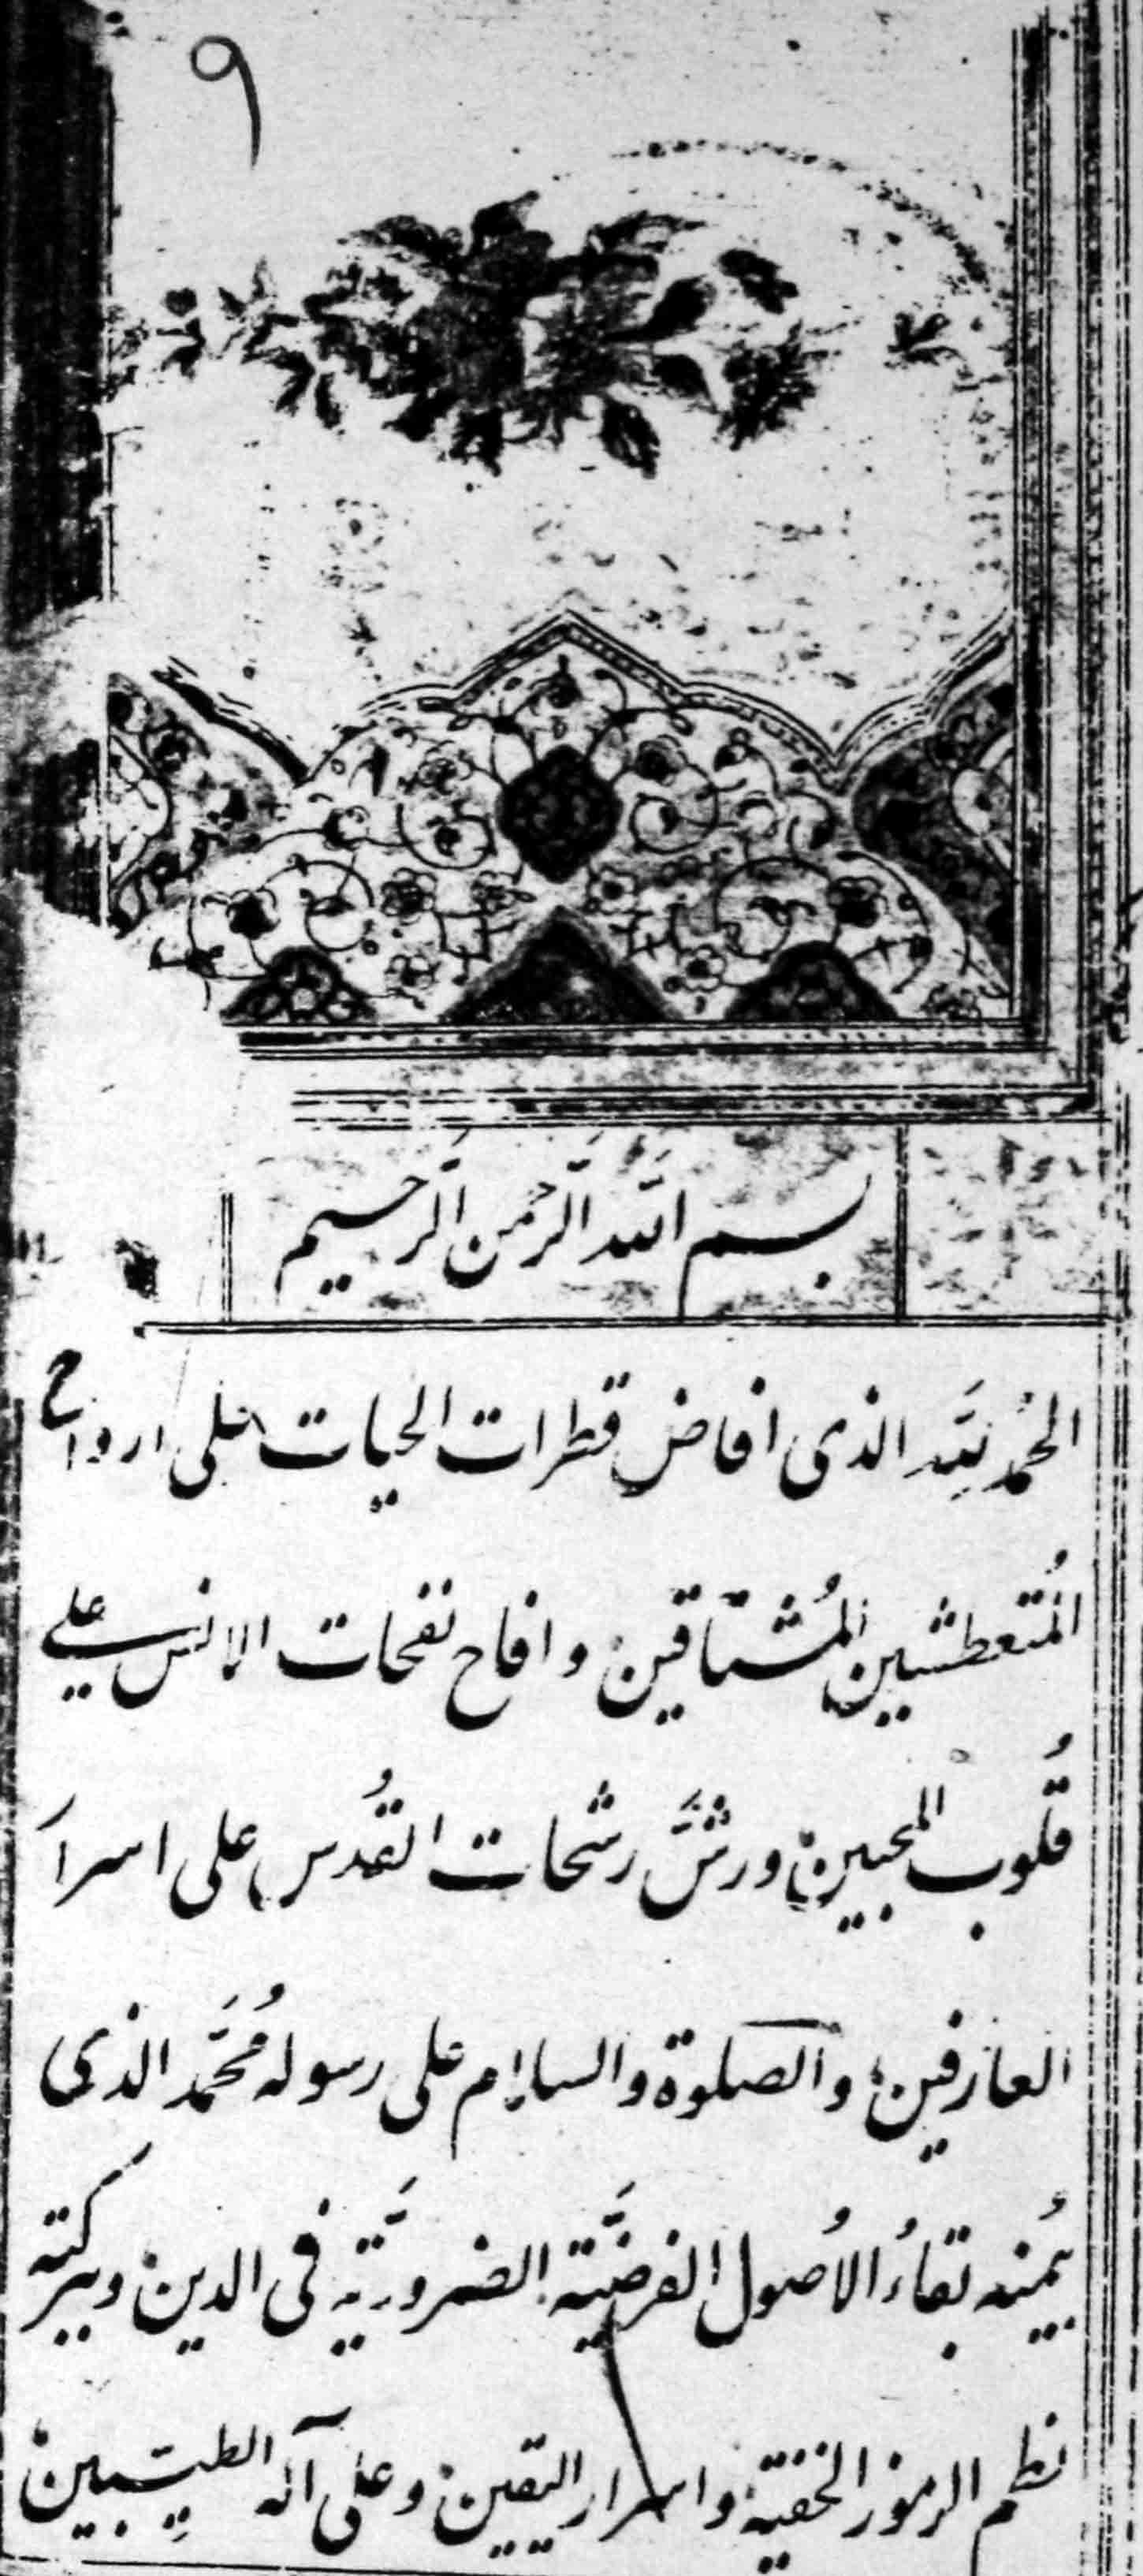 ٩
بسم الله الرحمن الرحیم
الحمُد لِلّه الذی افاض قطرات الحیات علی ارواح
المُتعطشین المُشتاقین و افاح نفحات الانس علی
قُلوب المحبین و رشَّ رشحات القُدس علی اسرا
العارفین و الصلوة والسلام علی رسوله مُحَمَّد الذی
بیُمنه بقاءُ الاُصول الفرضیَّة الضروریَّة فی الدین وببرکته
نظم الرموز الخفیّة و اسرار الیقین و علی آله الطیِّبین